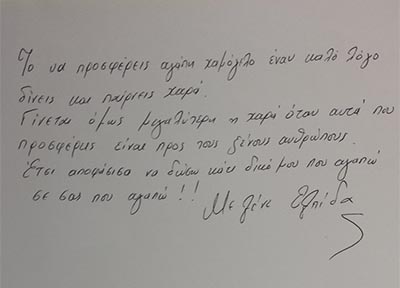 Το να προσφέρεις αγάπη χαμόγελο έναν καλό λόγο
δίνεις και παίρνεις χαρά.
Γίνεται όμως μεγαλύτερη η χαρά όταν αυτά που
προσφέρεις είναι προς τους ξένους ανθρώπους.
Έτσι αποφάσισα να δώσω κάτι δικό μου που αγαπώ
σε σας που αγαπώ!!
Με λένε Ελπίδα